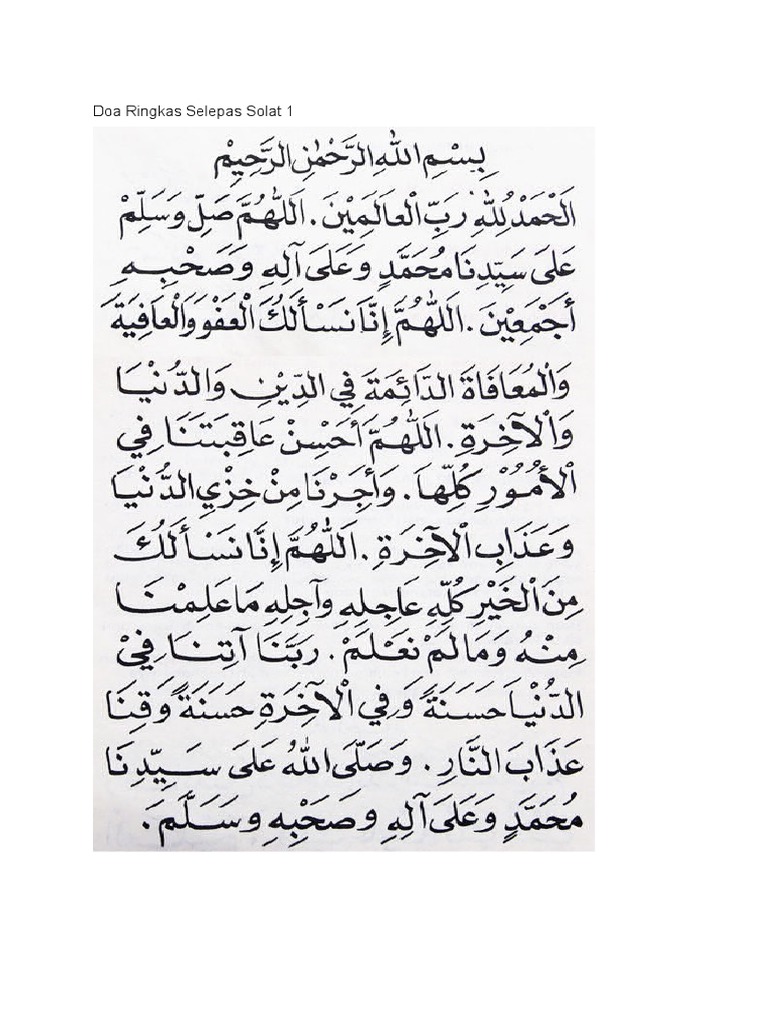 Doa Ringkas Selepas Solat 1
بِسْمِ اللهِ الرَّحْمٰنِ الرَّحِيْمِ
اَلْحَمْدُ لِلّٰهِ رَبِّ الْعَالَمِيْنَ. اَللّٰهُمَّ صَلِّ وَسَلِّمْ
عَلَى سَيِّدِنَا مُحَمَّدٍ وَعَلَى آلِهِ وَصَحْبِهِ
أَجْمَعِيْنَ. اَللّٰهُمَّ إِنَّا نَسْأَلُكَ الْعَفْوَ وَالْعَافِيَةَ
وَالْمُعَافَاةَ الدَّائِمَةَ فِي الدِّيْنِ وَالدُّنْيَا
وَالْآخِرَةِ. اَللّٰهُمَّ أَحْسِنْ عَاقِبَتَنَا فِي
الْأُمُوْرِ كُلِّهَا. وَأَجِرْنَا مِنْ خِزْيِ الدُّنْيَا
وَعَذَابِ الْآخِرَةِ. اَللّٰهُمَّ إِنَّا نَسْأَلُكَ
مِنَ الْخَيْرِ كُلِّهِ عَاجِلِهِ وَآجِلِهِ مَا عَلِمْنَا
مِنْهُ وَمَا لَمْ نَعْلَمْ. رَبَّنَا آتِنَا فِيْ
الدُّنْيَا حَسَنَةً وَفِي الْآخِرَةِ حَسَنَةً وَقِنَا
عَذَابَ النَّارِ. وَصَلَّى اللهُ عَلَى سَيِّدِنَا
مُحَمَّدٍ وَعَلَى آلِهِ وَصَحْبِهِ وَسَلَّمَ.